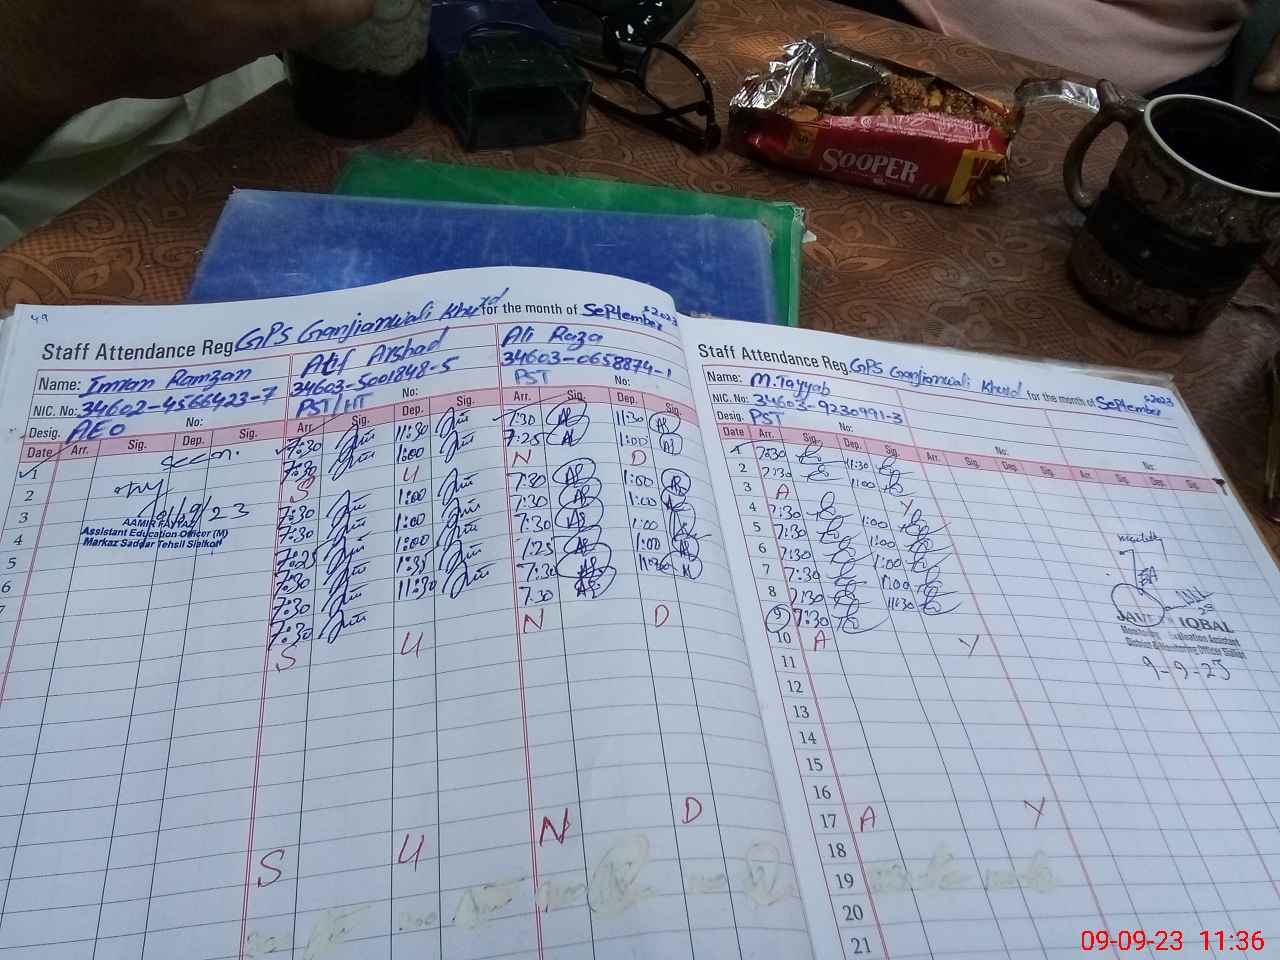 SOOPER
49
Staff Attendance Reg. GPS Ganjianwali Khurd for the month of September s2023
Name: Imran Ramzan Atif Arshad Ali Raza
NIC. No: 34602-4566423-7 34603-5001848-5 34603-0658874-1
Desig. AEO No: PST/HT PST No:
Date Arr. Sig. Dep. Sig. Arr. Sig. Dep. Sig. Arr. Sig. Dep. Sig.
1 7:30 11:30 7:30 11:30
2 7:30 1:00 7:25 1:00
3 S U N D
4 7:30 1:00 7:30 1:00
5 7:30 1:00 7:30 1:00
6 7:25 1:00 7:30 1:00
7 7:30 1:35 1:25 1:00
7:30 11:30 7:30 11:30
7:30 7:30
S U N D
S U N D
01/9/23
AAMIR FAYYAZ
Assistant Education Officer (M)
Markaz Saddar Tehsil Sialkot
Staff Attendance Reg. GPS Ganjianwali Khurd for the month of September s2023
Name: M.Tayyab
NIC. No: 34603-9230991-3
Desig. PST No: No:
Date Arr. Sig. Dep. Sig. Arr. Sig. Dep. Sig. Arr. Sig. Dep. Sig.
1 7:30 11:30
2 7:30 1:00
3 A Y
4 7:30 1:00
5 7:30 1:00
6 7:30 1:00
7 7:30 1:00
8 7:30 11:30
9 7:30
10 A Y
11
12
13
14
15
16
17 A Y
18
19
20
21
JAVED IQBAL
Monitoring Evaluation Assistant
District Monitoring Officer Sialkot
9-9-23
09-09-23 11:36